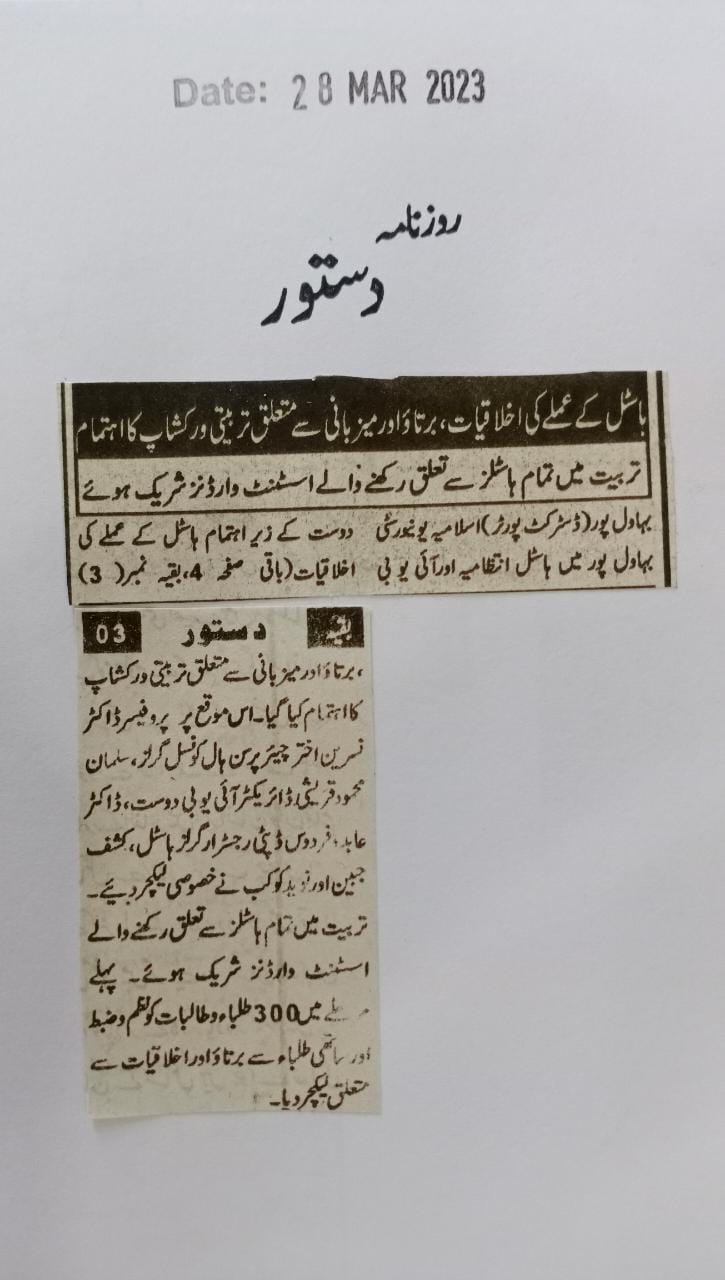 Date: 28 MAR 2023
روزنامہ
دستور
ہاسٹل کے عملے کی اخلاقیات، برتاؤ اور میزبانی سے متعلق تربیتی ورکشاپ کا اہتمام
تربیت میں تمام ہاسٹلز سے تعلق رکھنے والے اسسٹنٹ وارڈنز شریک ہوئے
بہاول پور (ڈسٹرکٹ رپورٹر) اسلامیہ یونیورسٹی
بہاول پور میں ہاسٹل انتظامیہ اور آئی یو بی
دوست کے زیر اہتمام ہاسٹل کے عملے کی
اخلاقیات (باقی صفحہ 4، بقیہ نمبر (3)
بقیہ دستور 03
، برتاؤ اور میزبانی سے متعلق تربیتی ورکشاپ
کا اہتمام کیا گیا۔ اس موقع پر پروفیسر ڈاکٹر
نسرین اختر چیئرپرسن ہال کونسل گرلز، سلمان
محمود قریشی ڈائریکٹر آئی یو بی دوست، ڈاکٹر
عابدہ فردوس ڈپٹی رجسٹرار گرلز ہاسٹل، کشف
جبین اور نوید کوکب نے خصوصی لیکچر دیئے۔
تربیت میں تمام ہاسٹلز سے تعلق رکھنے والے
اسسٹنٹ وارڈنز شریک ہوئے۔ پہلے
مرحلے میں 300 طلباء و طالبات کو نظم و ضبط
اور ساتھی طلباء سے برتاؤ اور اخلاقیات سے
متعلق لیکچر دیا۔